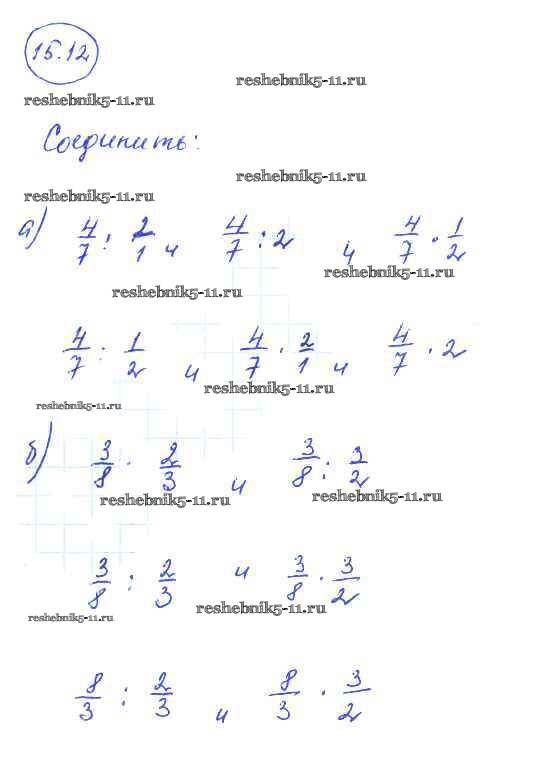 15.12
reshebnik5-11.ru
reshebnik5-11.ru
Соединить:
reshebnik5-11.ru
reshebnik5-11.ru
а) 4/7 : 2/1 и 4/7 : 2 и 4/7 · 1/2
reshebnik5-11.ru
reshebnik5-11.ru
4/7 : 1/2 и 4/7 · 2/1 и 4/7 · 2
reshebnik5-11.ru
reshebnik5-11.ru
б) 3/8 · 2/3 и 3/8 : 3/2
reshebnik5-11.ru
reshebnik5-11.ru
3/8 : 2/3 и 3/8 · 3/2
reshebnik5-11.ru
reshebnik5-11.ru
8/3 : 2/3 и 8/3 · 3/2